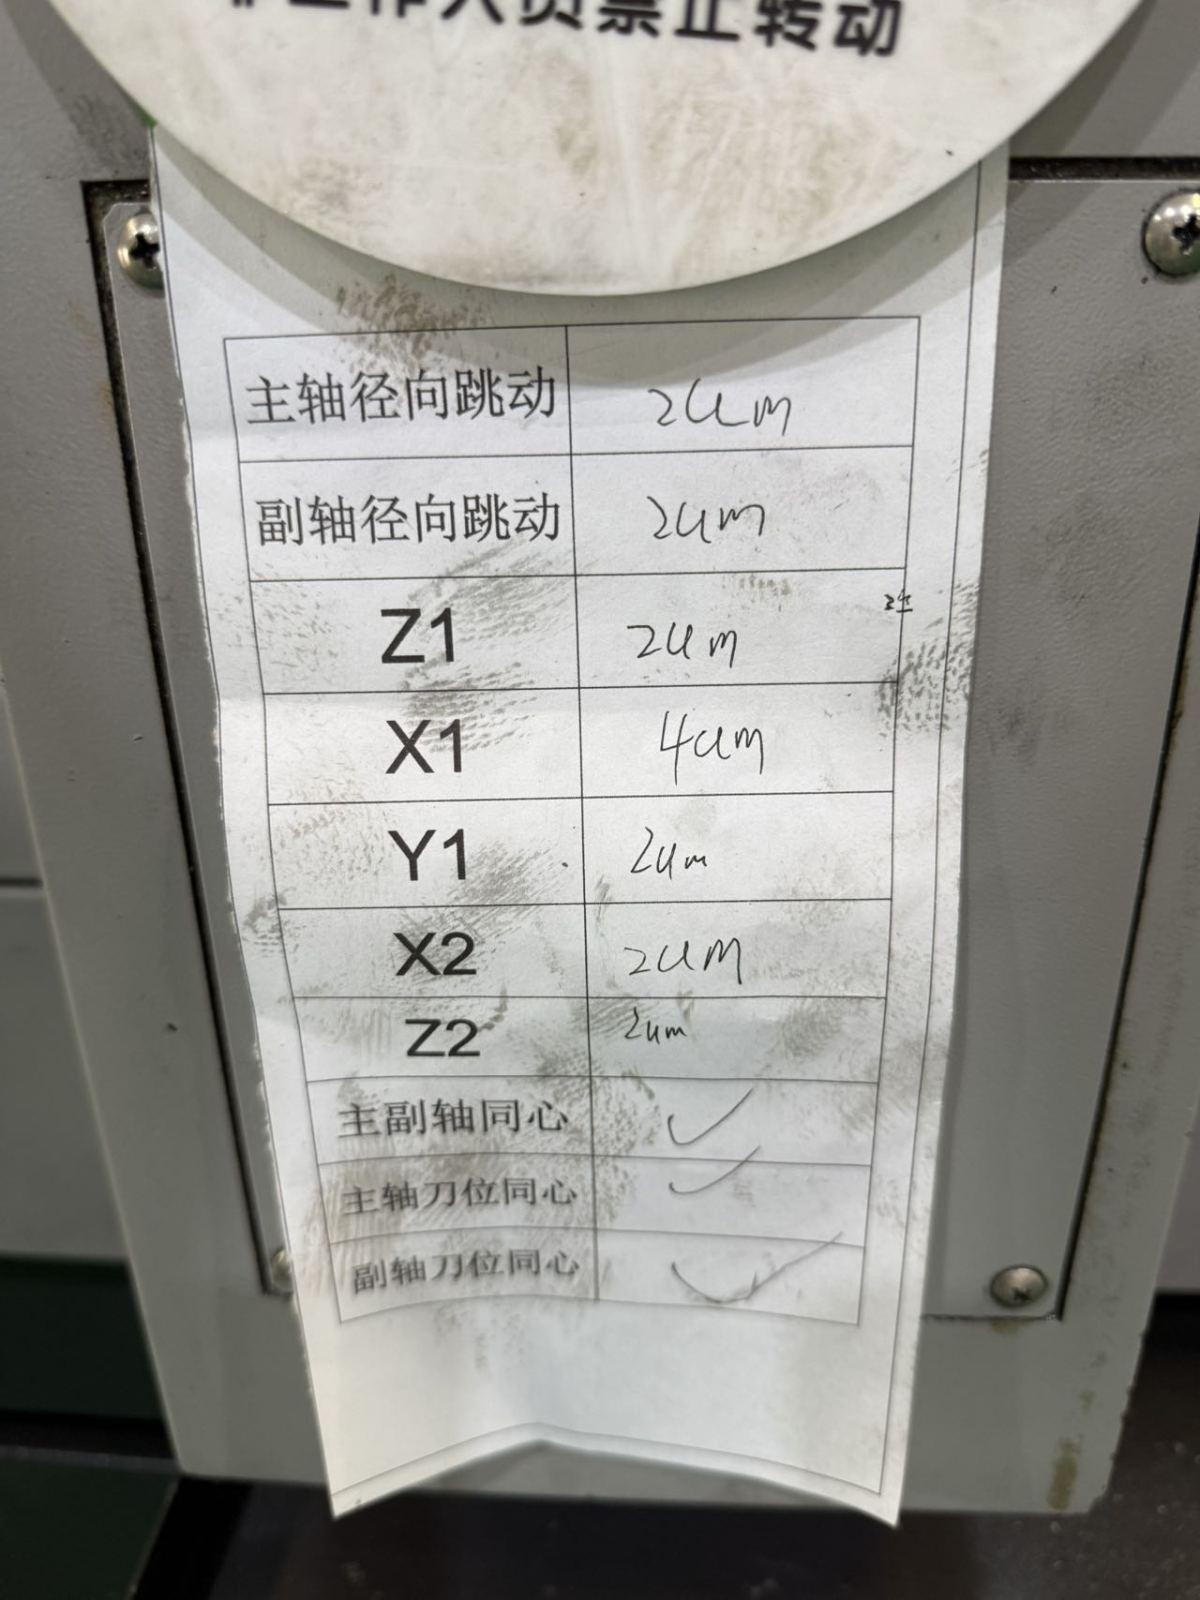 工作人员禁止转动
主轴径向跳动 2um
副轴径向跳动 2um
Z1 2um
X1 4um
Y1 2um
X2 2um
Z2 2um
主副轴同心 ✓
主轴刀位同心 ✓
副轴刀位同心 ✓